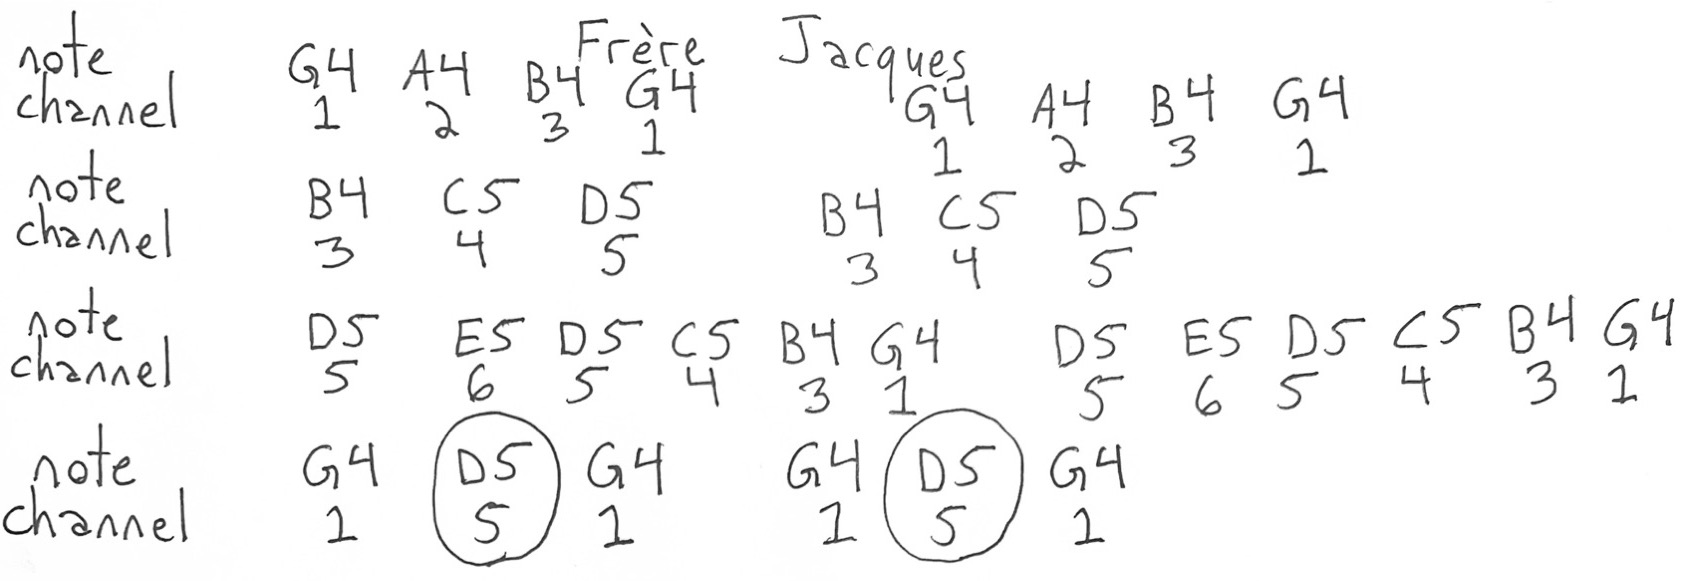 Frère Jacques
note G4 A4 B4 G4 G4 A4 B4 G4
channel 1 2 3 1 1 2 3 1
note B4 C5 D5 B4 C5 D5
channel 3 4 5 3 4 5
note D5 E5 D5 C5 B4 G4 D5 E5 D5 C5 B4 G4
channel 5 6 5 4 3 1 5 6 5 4 3 1
note G4 D5 G4 G4 D5 G4
channel 1 5 1 1 5 1